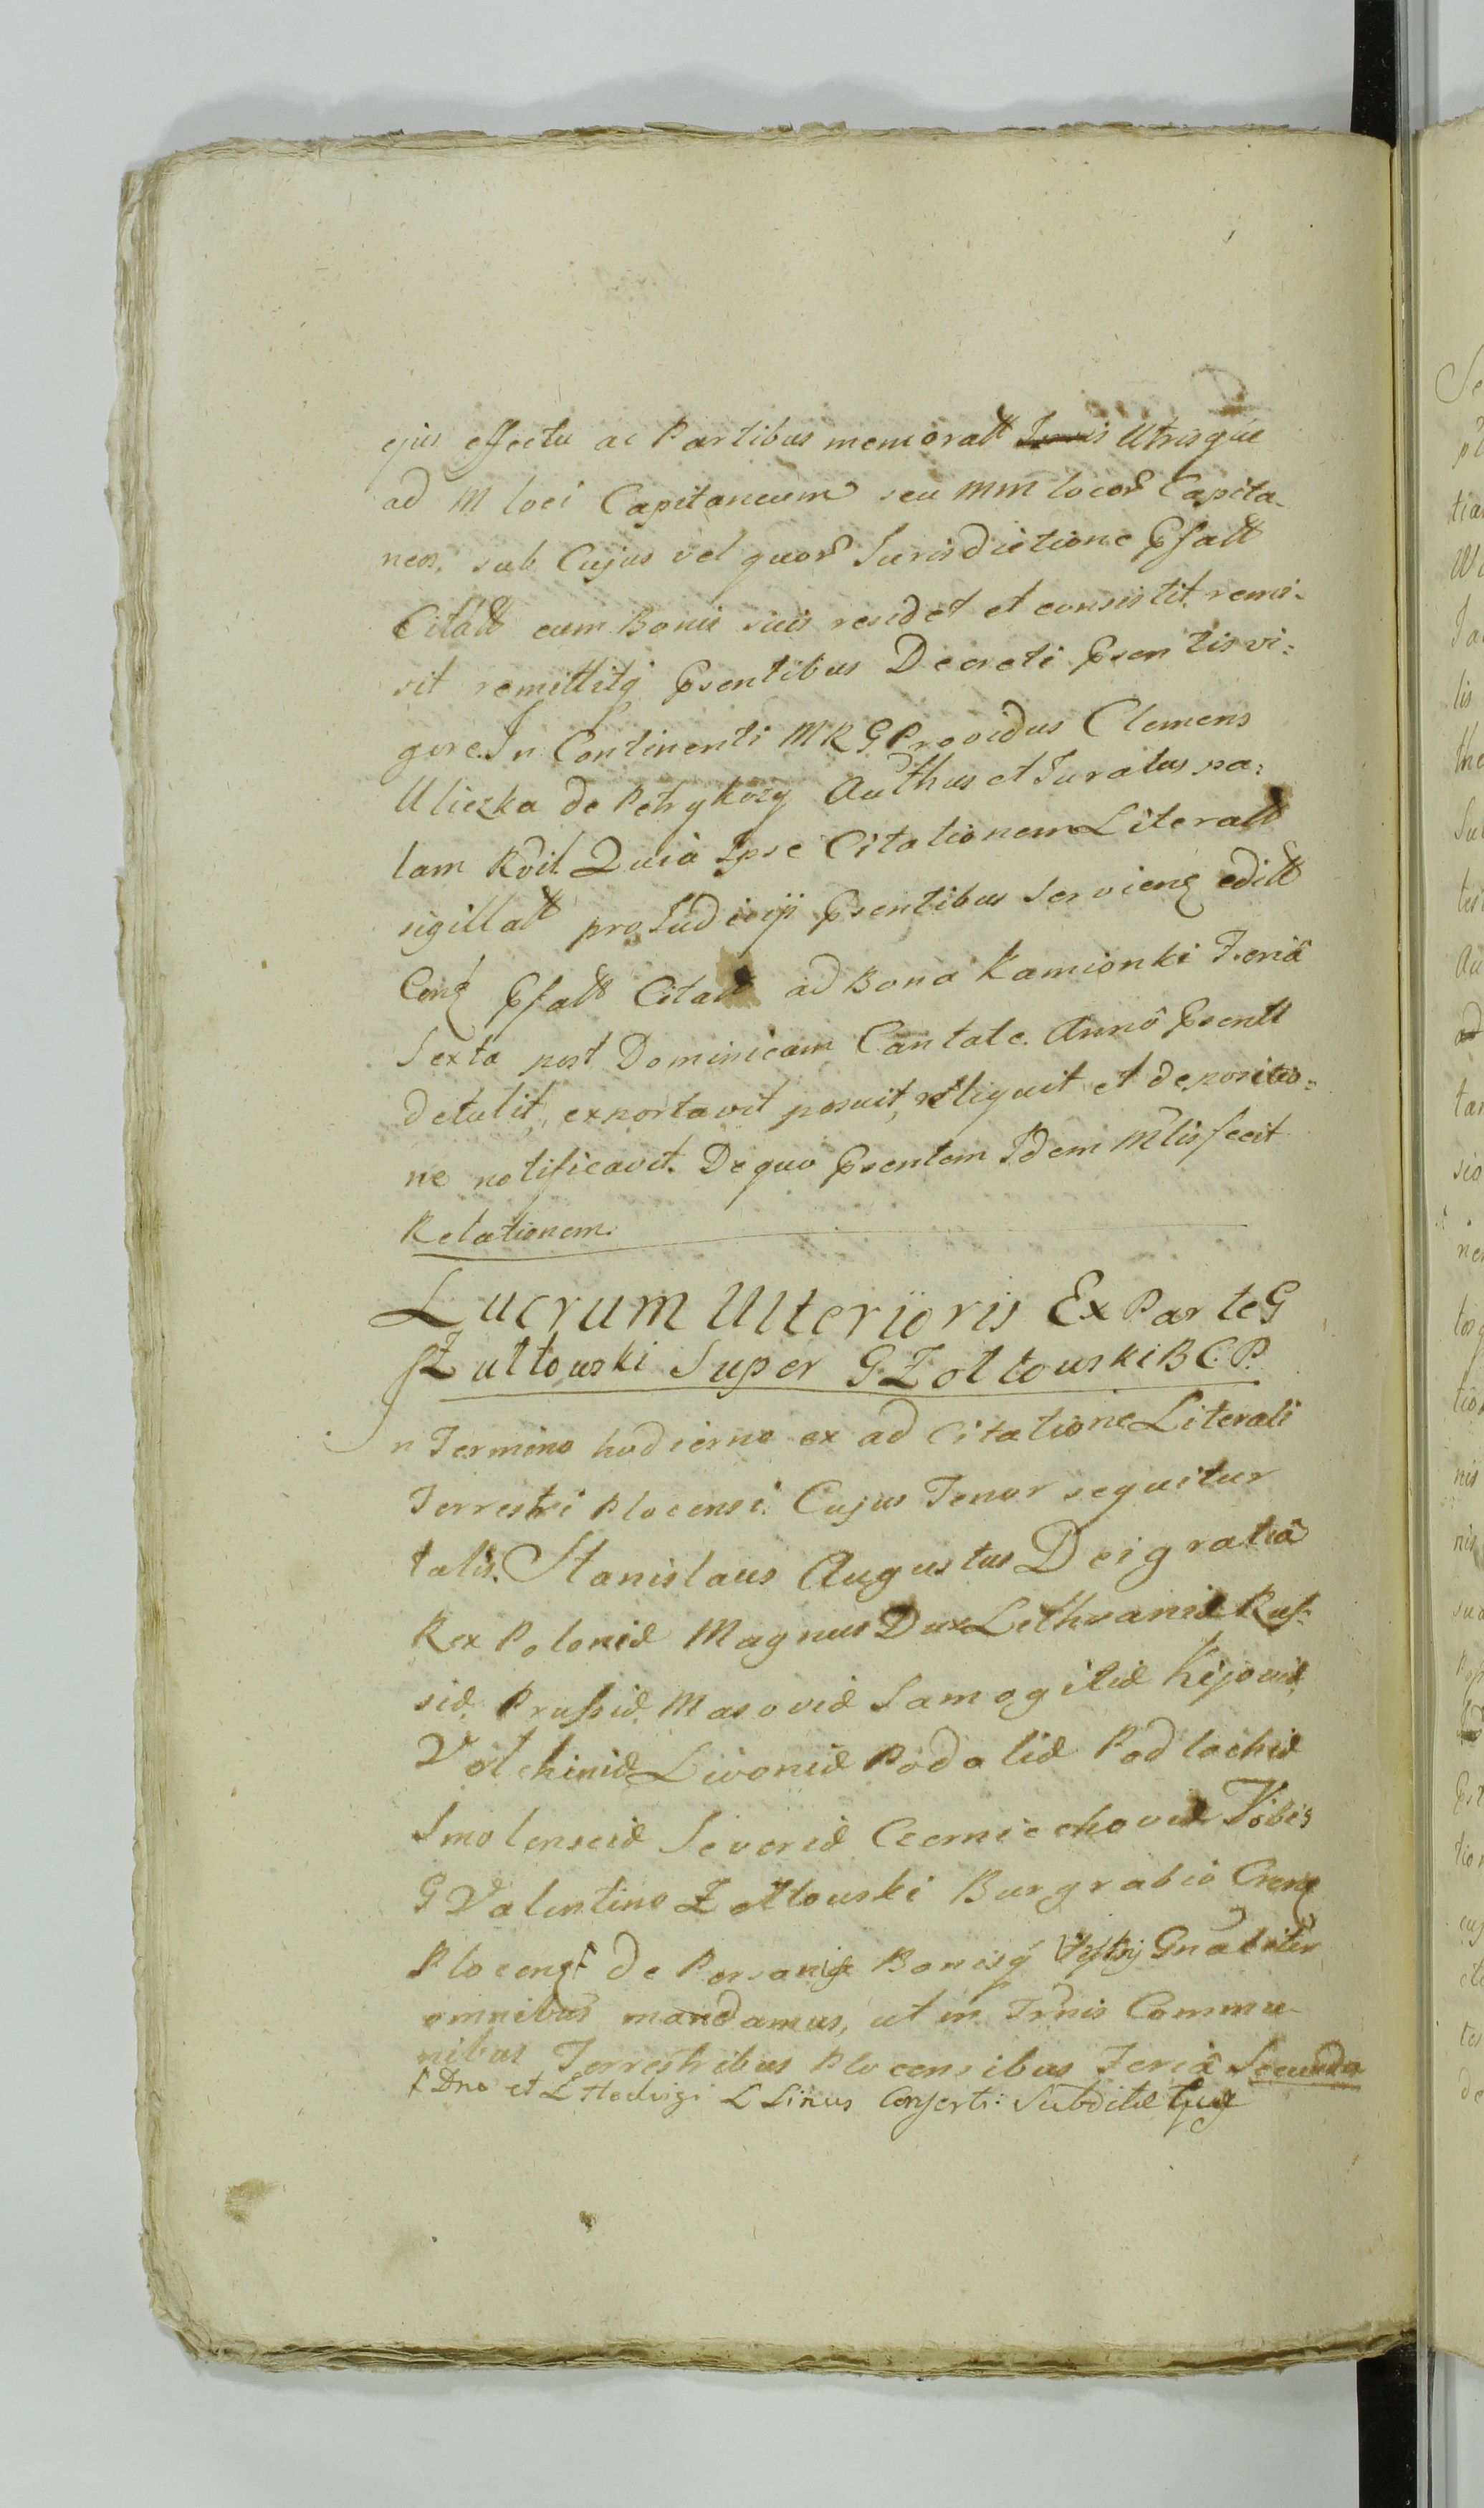 ejus effectu ac Partibus memoratt Utrisque
ad M loci Capitaneum seu MM locor Capita-
neos, sub Cujus vel quor Jurisdictione Psatt
Citatt cum Bonis suis residet et consistit remi-
sit remittitq Psentibus Decreti Psentis vi=
gore. In Continenti MRG Providus Clemens
Uliczka de Petrykozy Authus et Juratus pa=
lam Rdit Quia Ipse Citationem Literatt
sigillatt pro Judicij Psentibus Servieng editt
Cong Psatt Citatt ad Bona Kamionki Feriâ
Sexta post Dominicam Cantate Annô Psentt
detulit, exportavit posuit, reliquit et depositio=
ne notificavit. De quo Psentem Idem Mlis fecit
Relationem.
Lucrum Ulterioris Ex Parte G
Zułtowski Super G Zołtowski B.C.P.
In Termino hodierno ex ad Citatione Literali
Terrestri Plocensi. Cujus Tenor sequitur
talis. Stanislaus Augustus Dei gratiâ
Rex Poloniæ Magnus Dux Lithvaniæ Rus=
siæ, Prussiæ, Masoviæ Samogitiæ Kijoviæ,
Volchiniæ Livoniæ Podoliæ Podlachiæ
Smolensciæ Severiæ Czerniechoviæ Vobis
G Valentino Zołtowski Burgrabio Crens
Ploceng † de Personis Bonisq Vestris Gnaliter
omnibus mandamus, ut in Trnis Commu-
nibus Terrestribus Plocensibus Feriâ Secunda
† Dno et L Hedvigi L Linus Conserti: Subditæ tuæ